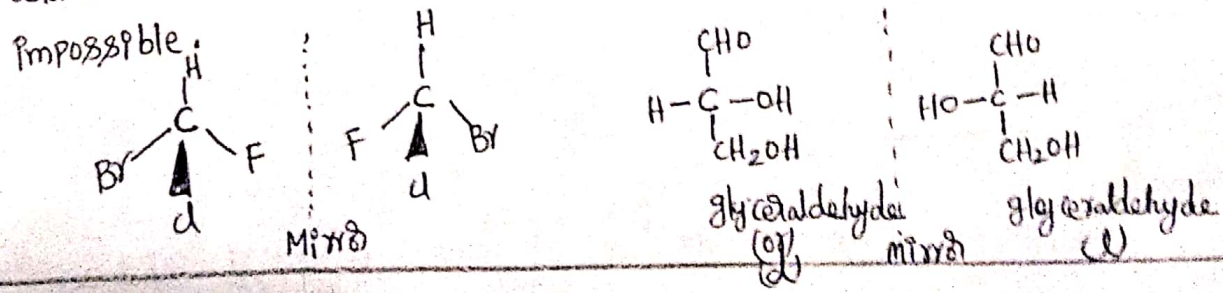 impossible.
H
C
Br F
Cl
Mirror
H
C
F Br
Cl
CHO
H-C-OH
CH2OH
glyceraldehyde
(d)
mirror
CHO
HO-C-H
CH2OH
glyceraldehyde
(l)